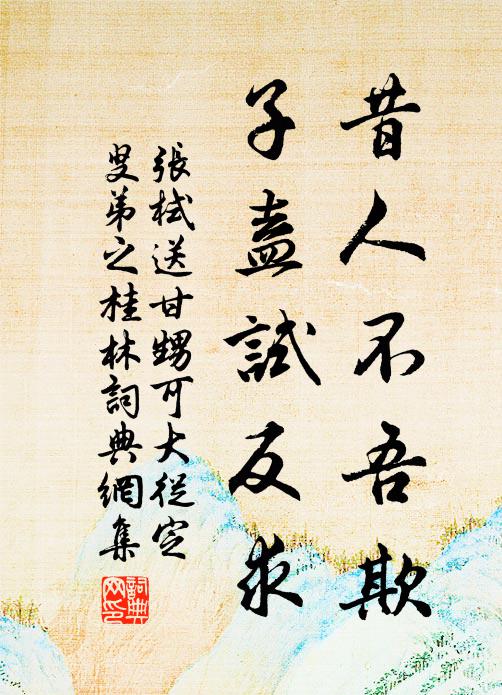 昔人不吾欺
子盍試反求
張栻送甘甥可大從定
叟弟之桂林詞典網集
詞典網印